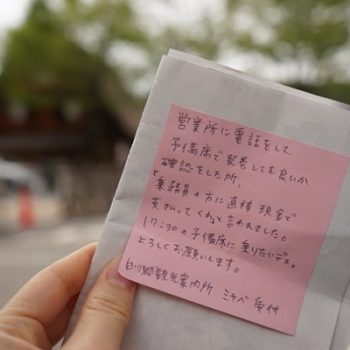 営業所に電話をして、
予備席で乗着しても良いか
確認をした所、
「乗務員の方に直接 現金で
支払ってくれ」と言われました。
17:30の予備席に乗りたいデス。
よろしくお願いします。
白川郷観光案内所 ミヤベ 受付